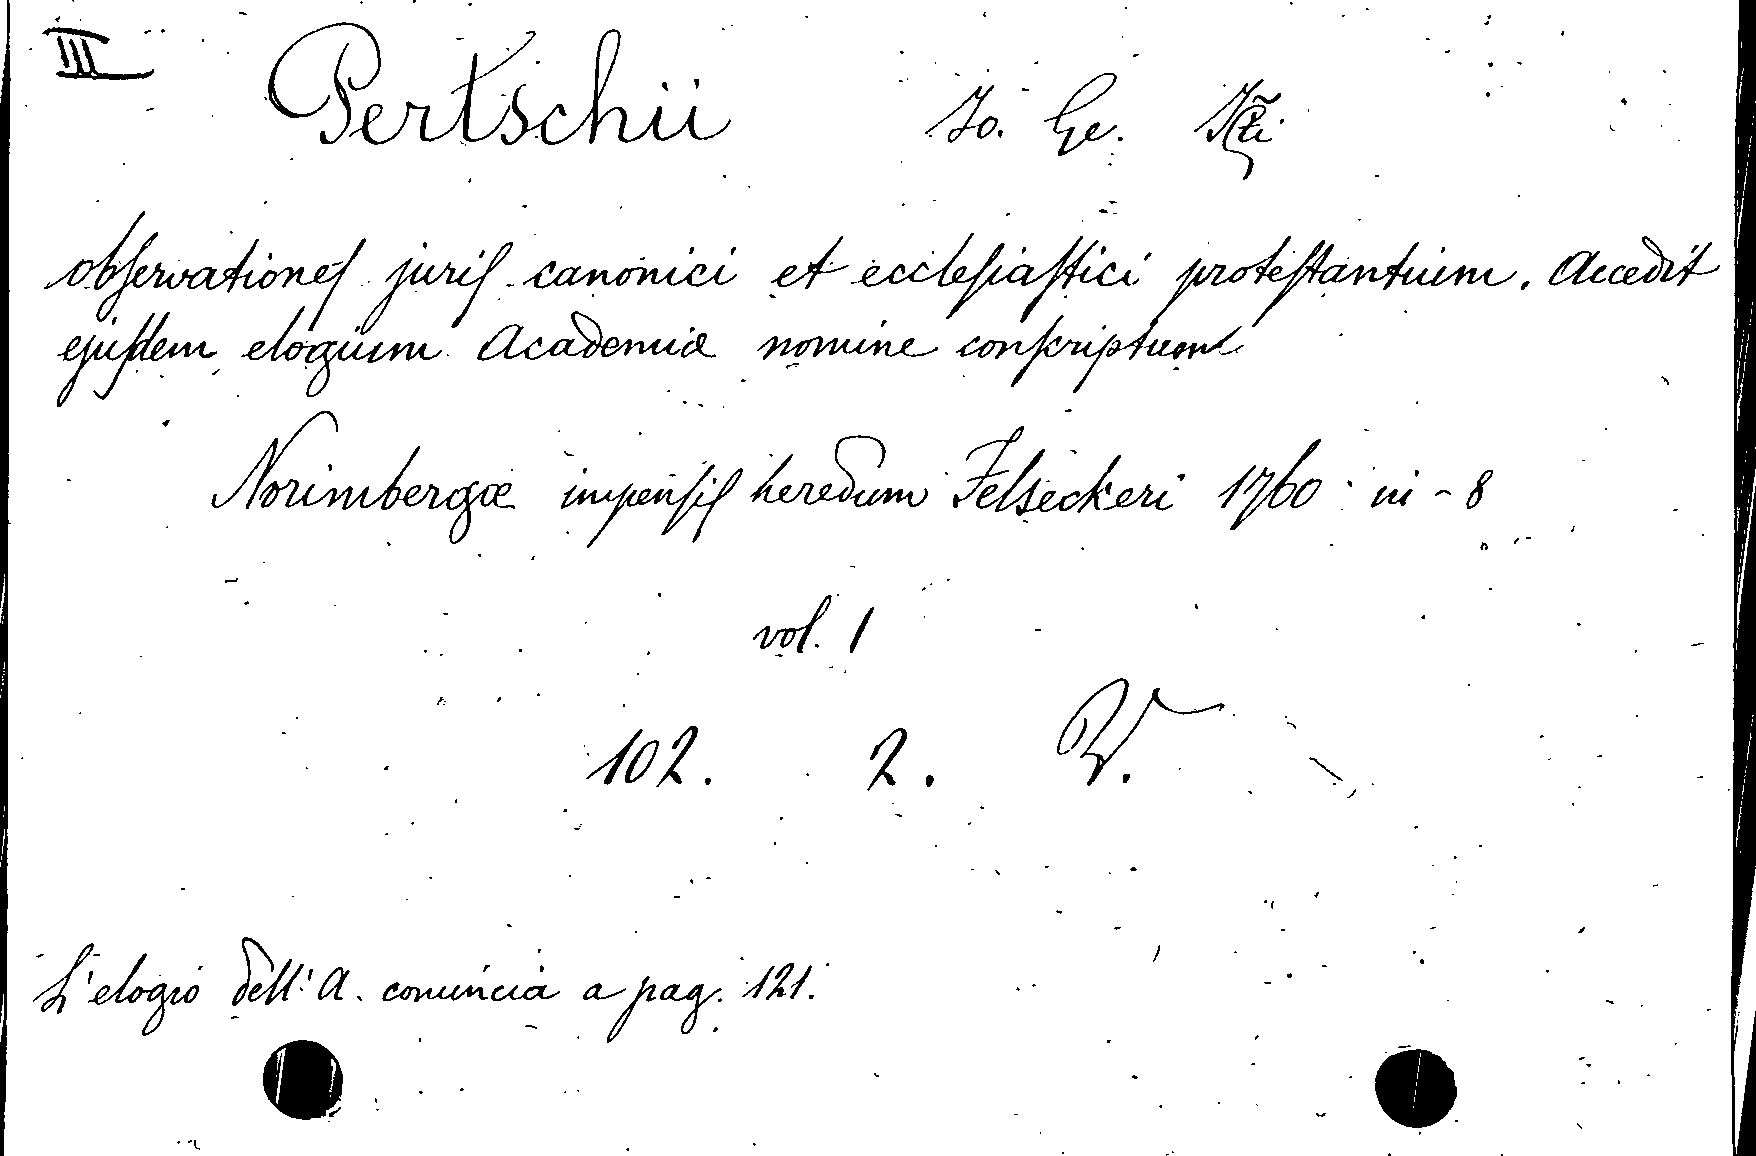 III
Pertschii Jo. Ge.
observationes juris canonici et ecclesiastici protestantium. Accedit
ejusdem elogium Academiæ nomine conscriptum
Norimbergæ impensis heredum Felseckeri 1760 in-8
vol. 1
102. 2. V.
L'elogio dell'A. comincia a pag. 121.